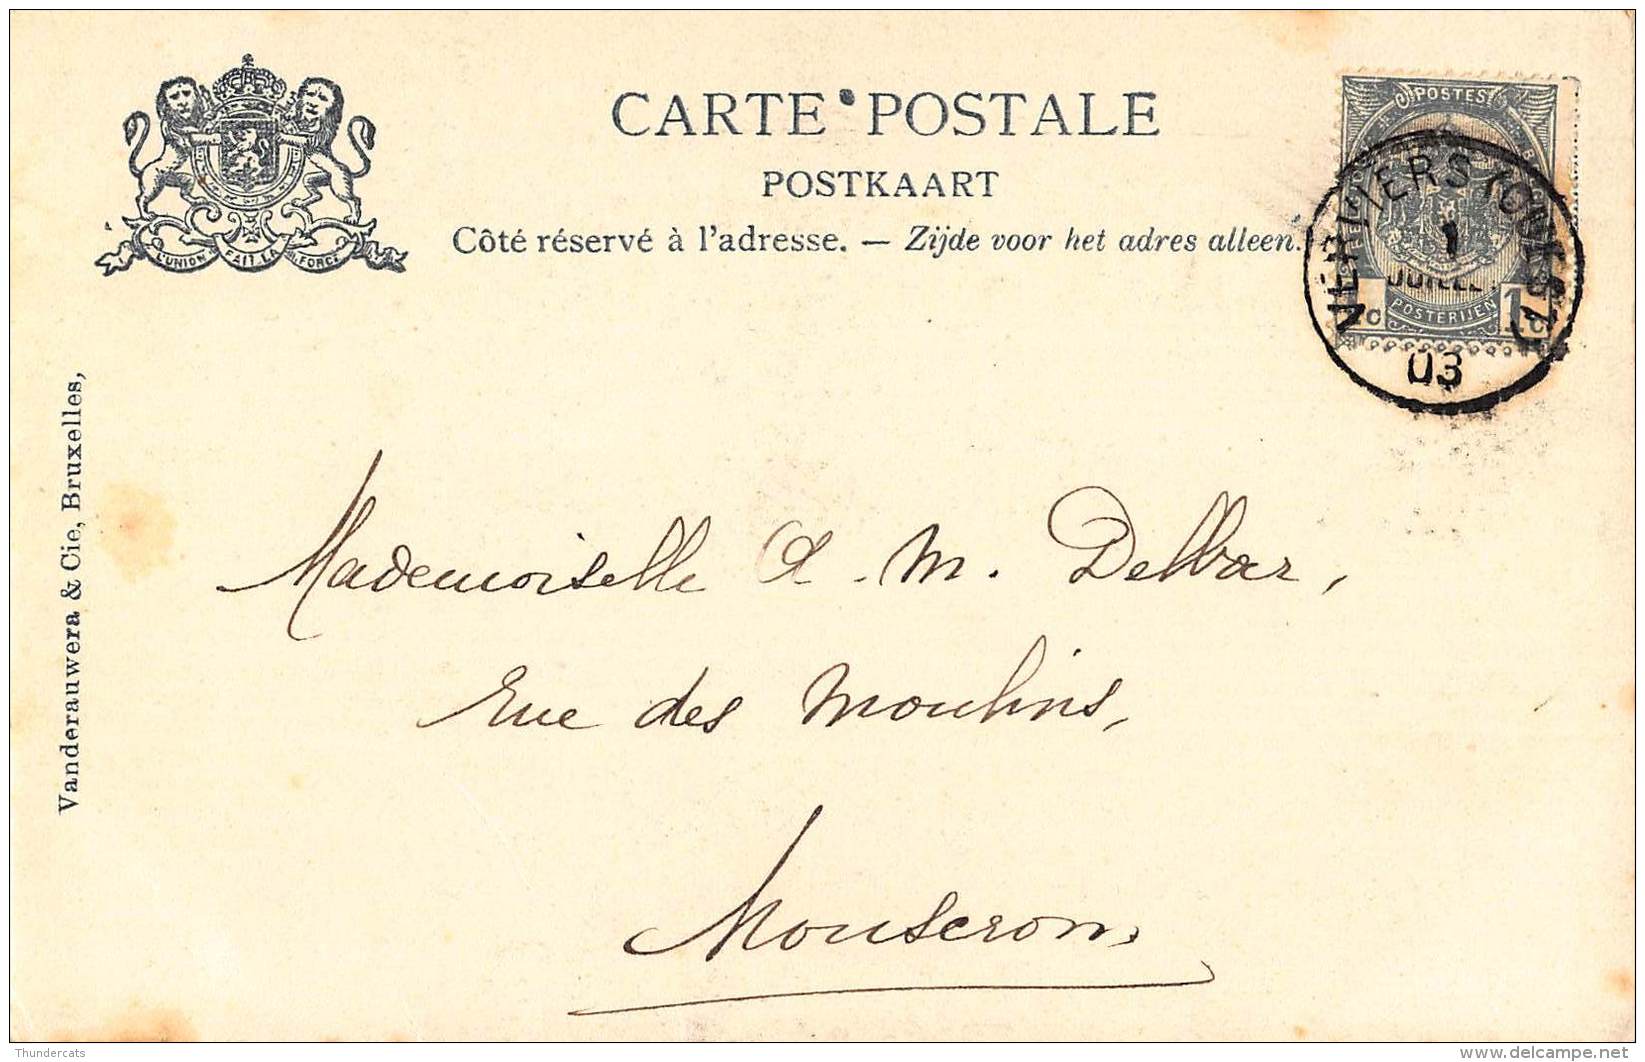 CARTE POSTALE
POSTKAART
Côté réservé à l'adresse. — Zijde voor het adres alleen.
L'UNION FAIT LA FORCE
POSTES
POSTERIJEN
1c
VERVIERS (OUEST)
1
JUILLET
03
Vanderauwera & Cie, Bruxelles,
Mademoiselle A. M. Delbar,
Rue des Moulins,
Mouscron,
Thundercats
www.delcampe.net